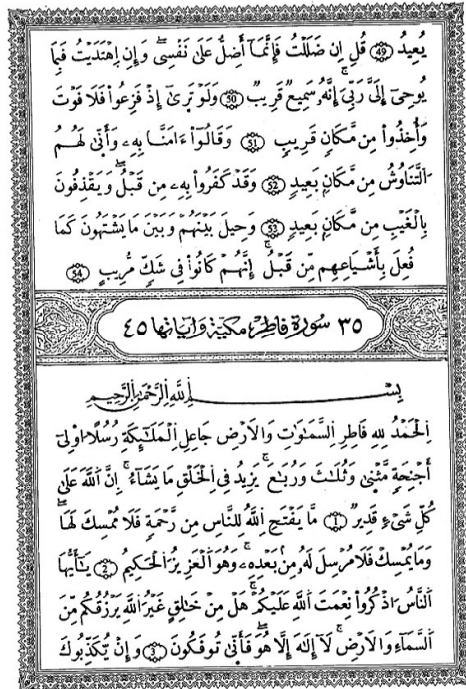 يُعِيدُ 49 قُلِ اِن ضَلَلْتُ فَإِنَّمَآ أَضِلُّ عَلَىٰ نَفْسِي وَإِنِ اِهْتَدَيْتُ فَبِمَا
يُوحِىٓ إِلَىَّ رَبِّىَ إِنَّهُۥ سَمِيعٌ قَرِيبٌ 50 وَلَوْ تَرَىٰٓ إِذْ فَزِعُواْ فَلَا فَوْتَ
وَأُخِذُواْ مِن مَّكَانٍ قَرِيبٍ 51 وَقَالُوٓاْ ءَامَنَّا بِهِۦ وَأَنَّىٰ لَهُمُ
اُلتَّنَاوُشُ مِن مَّكَانٍ بَعِيدٍ 52 وَقَدْ كَفَرُواْ بِهِۦ مِن قَبْلُ وَيَقْذِفُونَ
بِالْغَيْبِ مِن مَّكَانٍ بَعِيدٍ 53 وَحِيلَ بَيْنَهُمْ وَبَيْنَ مَا يَشْتَهُونَ كَمَا
فُعِلَ بِأَشْيَاعِهِم مِّن قَبْلُ إِنَّهُمْ كَانُواْ فِى شَكٍّ مُّرِيبٍ 54
٣٥ سُورَةُ فَاطِر، مَكِّيَّة وَاٰيَاتُهَا ٤٥
بِسْــــمِ اِللَّهِ اِلرَّحْمَٰنِ اِلرَّحِيمِ
اِلْحَمْدُ لِلهِ فَاطِرِ اِلسَّمَٰوَٰتِ وَالْأَرْضِ جَاعِلِ اِلْمَلَٰٓئِكَةِ رُسُلًا اُوْلِىٓ
أَجْنِحَةٍ مَّثْنَىٰ وَثُلَٰثَ وَرُبَٰعَ يَزِيدُ فِى اِلْخَلْقِ مَا يَشَآءُ إِنَّ اَللَّهَ عَلَىٰ
كُلِّ شَىْءٍ قَدِيرٌ 1 مَّا يَفْتَحِ اِللَّهُ لِلنَّاسِ مِن رَّحْمَةٍ فَلَا مُمْسِكَ لَهَا
وَمَا يُمْسِكْ فَلَا مُرْسِلَ لَهُۥ مِنۢ بَعْدِهِۦ وَهُوَ اَلْعَزِيزُ اُلْحَكِيمُ 2 يَٰٓأَيُّهَا
اَلنَّاسُ اُذْكُرُواْ نِعْمَتَ اَللَّهِ عَلَيْكُمْ هَلْ مِنْ خَٰلِقٍ غَيْرُ اُللَّهِ يَرْزُقُكُم مِّنَ
اَلسَّمَآءِ وَالْأَرْضِ لَآ إِلَٰهَ إِلَّا هُوَ فَأَنَّىٰ تُوفَكُونَ 3 وَإِنْ يُّكَذِّبُوكَ